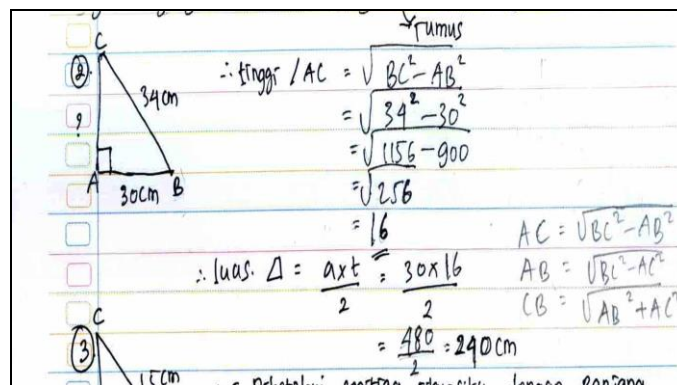 rumus
②
C
34cm
?
A
30cm
B
∴ tinggi / AC = √BC² - AB²
= √34² - 30²
= √1156 - 900
= √256
= 16
∴ luas Δ = axt/2 = 30x16/2
= 480/2 = 240cm
AC = √BC² - AB²
AB = √BC² - AC²
CB = √AB² + AC²
③
C
15cm